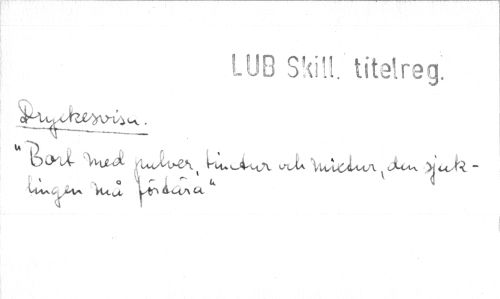 LUB Skill. titelreg.
Dryckesvisa.
"Bort med pulver, tinctur och mixtur, den sjuk-
lingen må förtära"